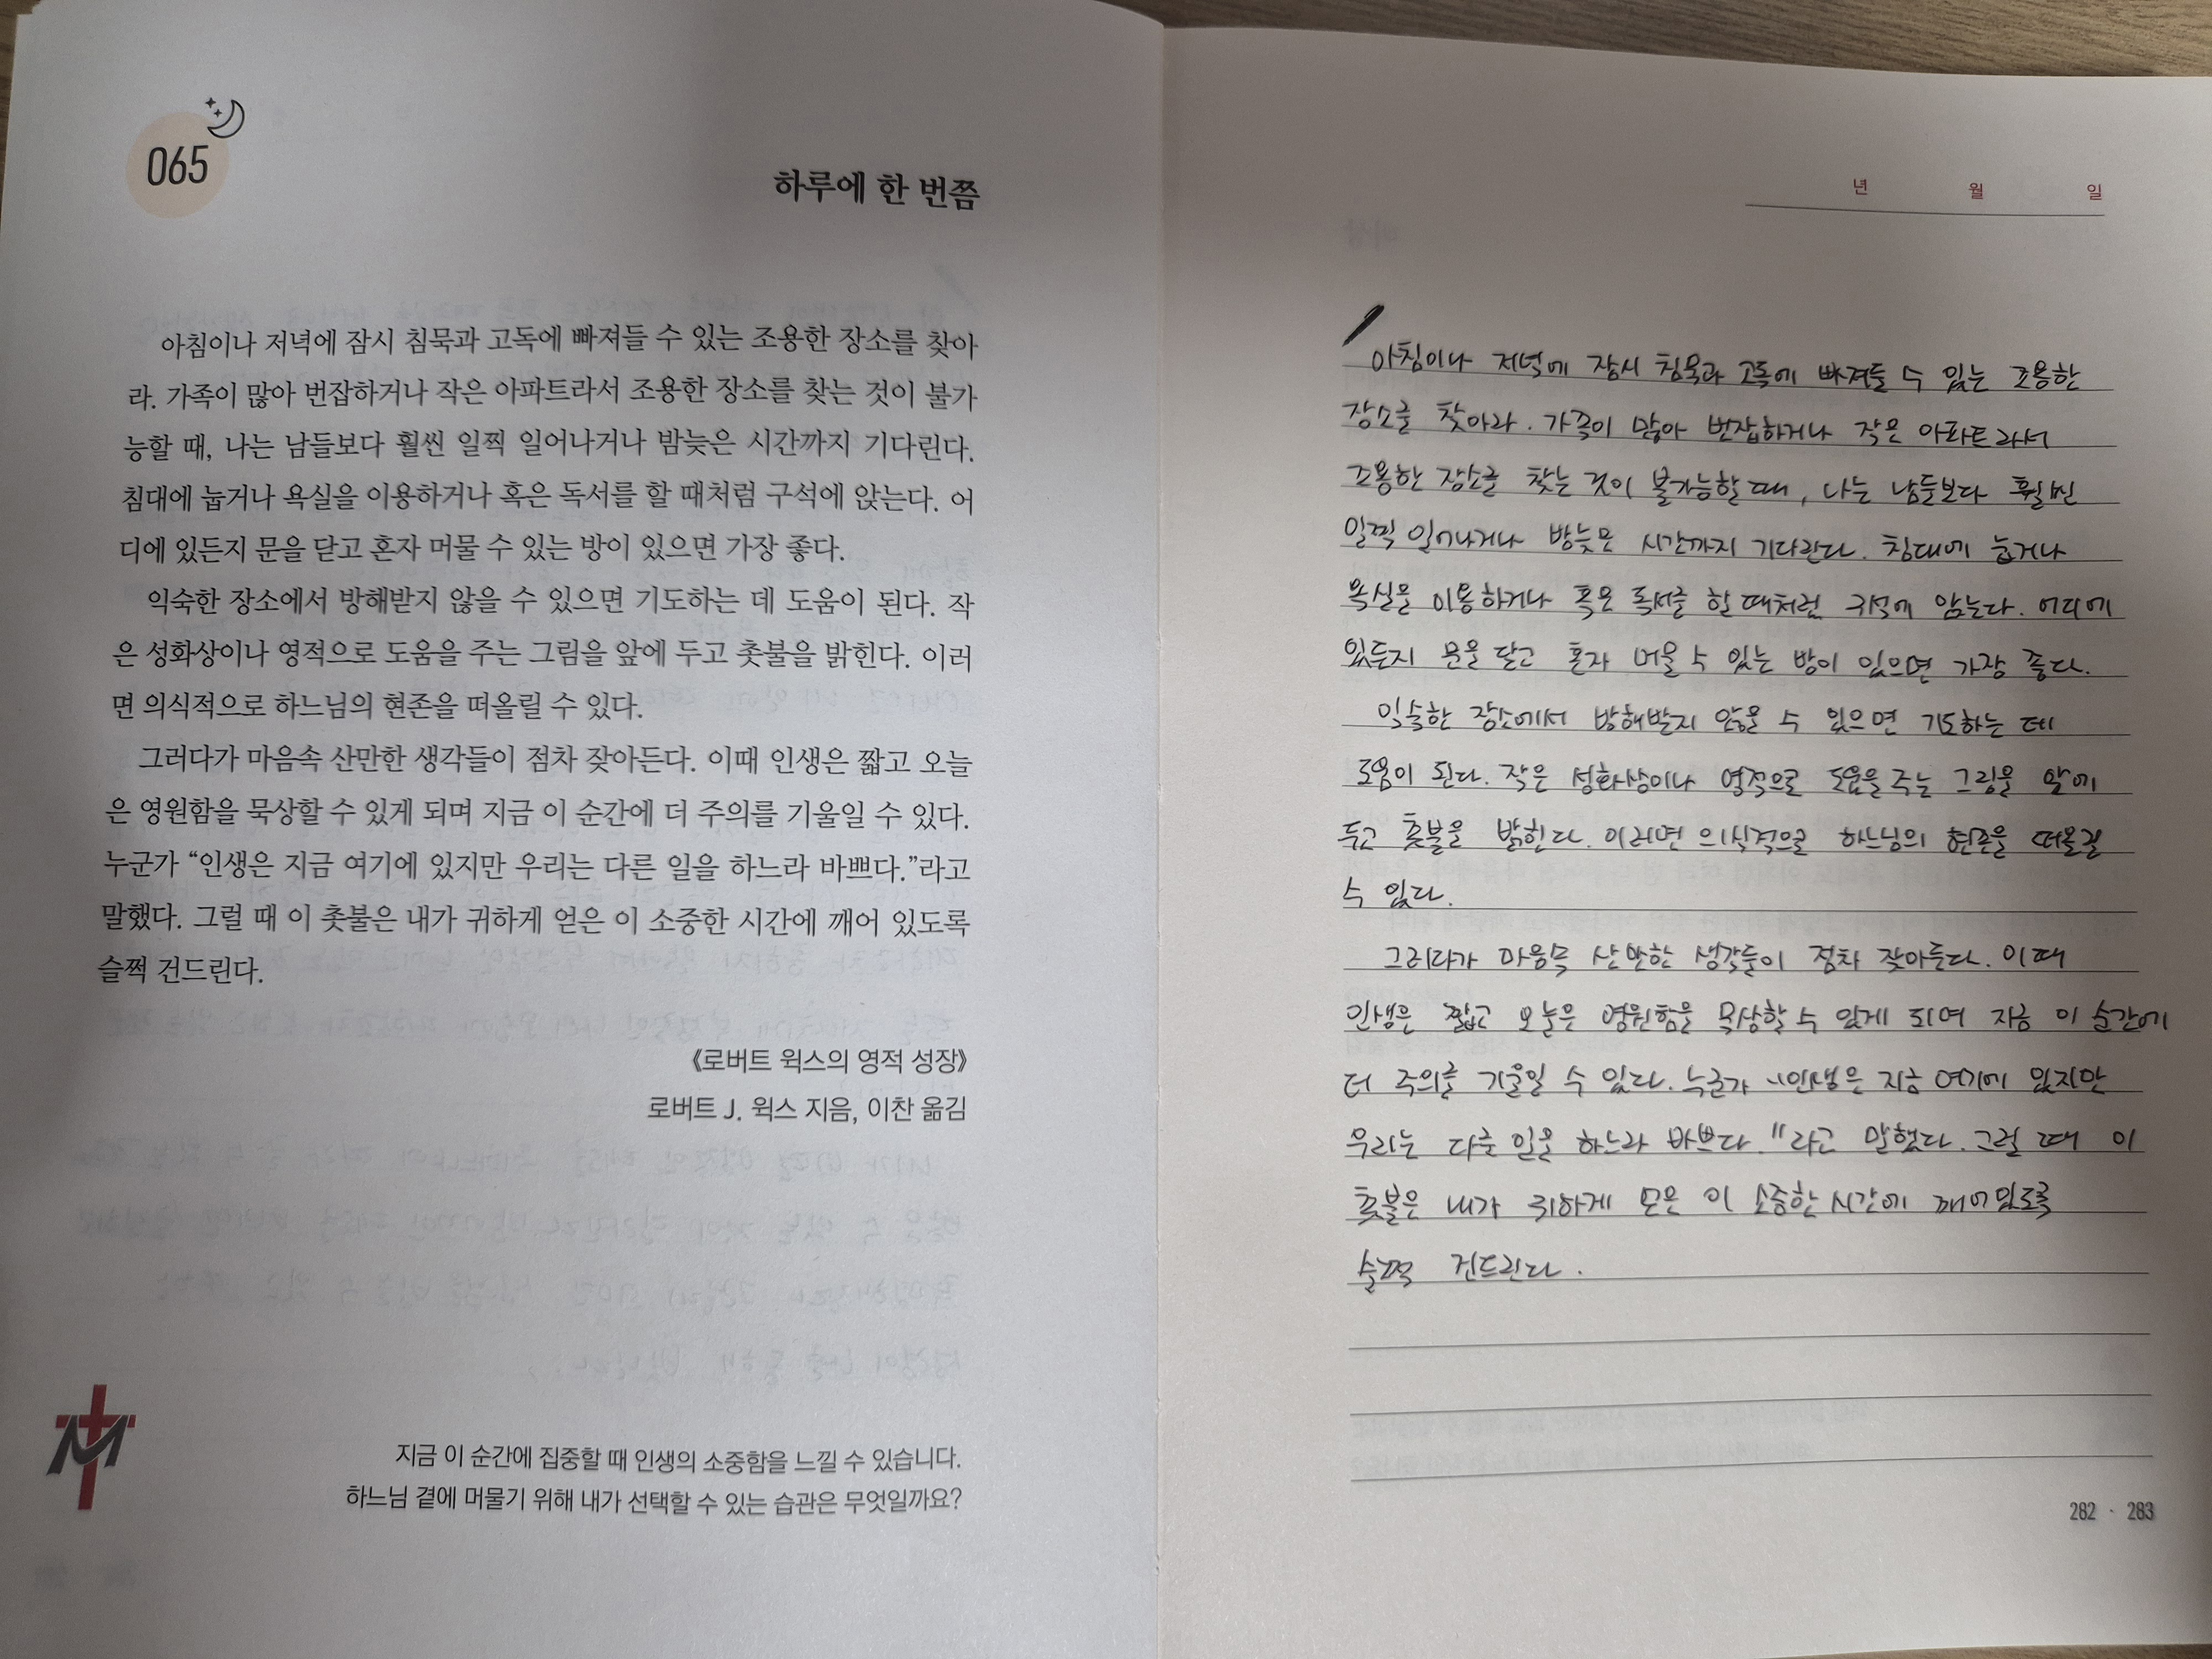 065
하루에 한 번쯤
아침이나 저녁에 잠시 침묵과 고독에 빠져들 수 있는 조용한 장소를 찾아
라. 가족이 많아 번잡하거나 작은 아파트라서 조용한 장소를 찾는 것이 불가
능할 때, 나는 남들보다 훨씬 일찍 일어나거나 밤늦은 시간까지 기다린다.
침대에 눕거나 욕실을 이용하거나 혹은 독서를 할 때처럼 구석에 앉는다. 어
디에 있든지 문을 닫고 혼자 머물 수 있는 방이 있으면 가장 좋다.
익숙한 장소에서 방해받지 않을 수 있으면 기도하는 데 도움이 된다. 작
은 성화상이나 영적으로 도움을 주는 그림을 앞에 두고 촛불을 밝힌다. 이러
면 의식적으로 하느님의 현존을 떠올릴 수 있다.
그러다가 마음속 산만한 생각들이 점차 잦아든다. 이때 인생은 짧고 오늘
은 영원함을 묵상할 수 있게 되며 지금 이 순간에 더 주의를 기울일 수 있다.
누군가 “인생은 지금 여기에 있지만 우리는 다른 일을 하느라 바쁘다.”라고
말했다. 그럴 때 이 촛불은 내가 귀하게 얻은 이 소중한 시간에 깨어 있도록
슬쩍 건드린다.
《로버트 윅스의 영적 성장》
로버트 J. 윅스 지음, 이찬 옮김
지금 이 순간에 집중할 때 인생의 소중함을 느낄 수 있습니다.
하느님 곁에 머물기 위해 내가 선택할 수 있는 습관은 무엇일까요?
년 월 일
아침이나 저녁에 잠시 침묵과 고독에 빠져들 수 있는 조용한
장소를 찾아라. 가족이 많아 번잡하거나 작은 아파트라서
조용한 장소를 찾는 것이 불가능할 때, 나는 남들보다 훨씬
일찍 일어나거나 밤늦은 시간까지 기다린다. 침대에 눕거나
욕실을 이용하거나 혹은 독서를 할 때처럼 구석에 앉는다. 어디에
있든지 문을 닫고 혼자 머물 수 있는 방이 있으면 가장 좋다.
익숙한 장소에서 방해받지 않을 수 있으면 기도하는 데
도움이 된다. 작은 성화상이나 영적으로 도움을 주는 그림을 앞에
두고 촛불을 밝힌다. 이러면 의식적으로 하느님의 현존을 떠올릴
수 있다.
그러다가 마음속 산만한 생각들이 점차 잦아든다. 이때
인생은 짧고 오늘은 영원함을 묵상할 수 있게 되며 지금 이 순간에
더 주의를 기울일 수 있다. 누군가 "인생은 지금 여기에 있지만
우리는 다른 일을 하느라 바쁘다."라고 말했다. 그럴 때 이
촛불은 내가 귀하게 얻은 이 소중한 시간에 깨어있도록
슬쩍 건드린다.
282 · 283